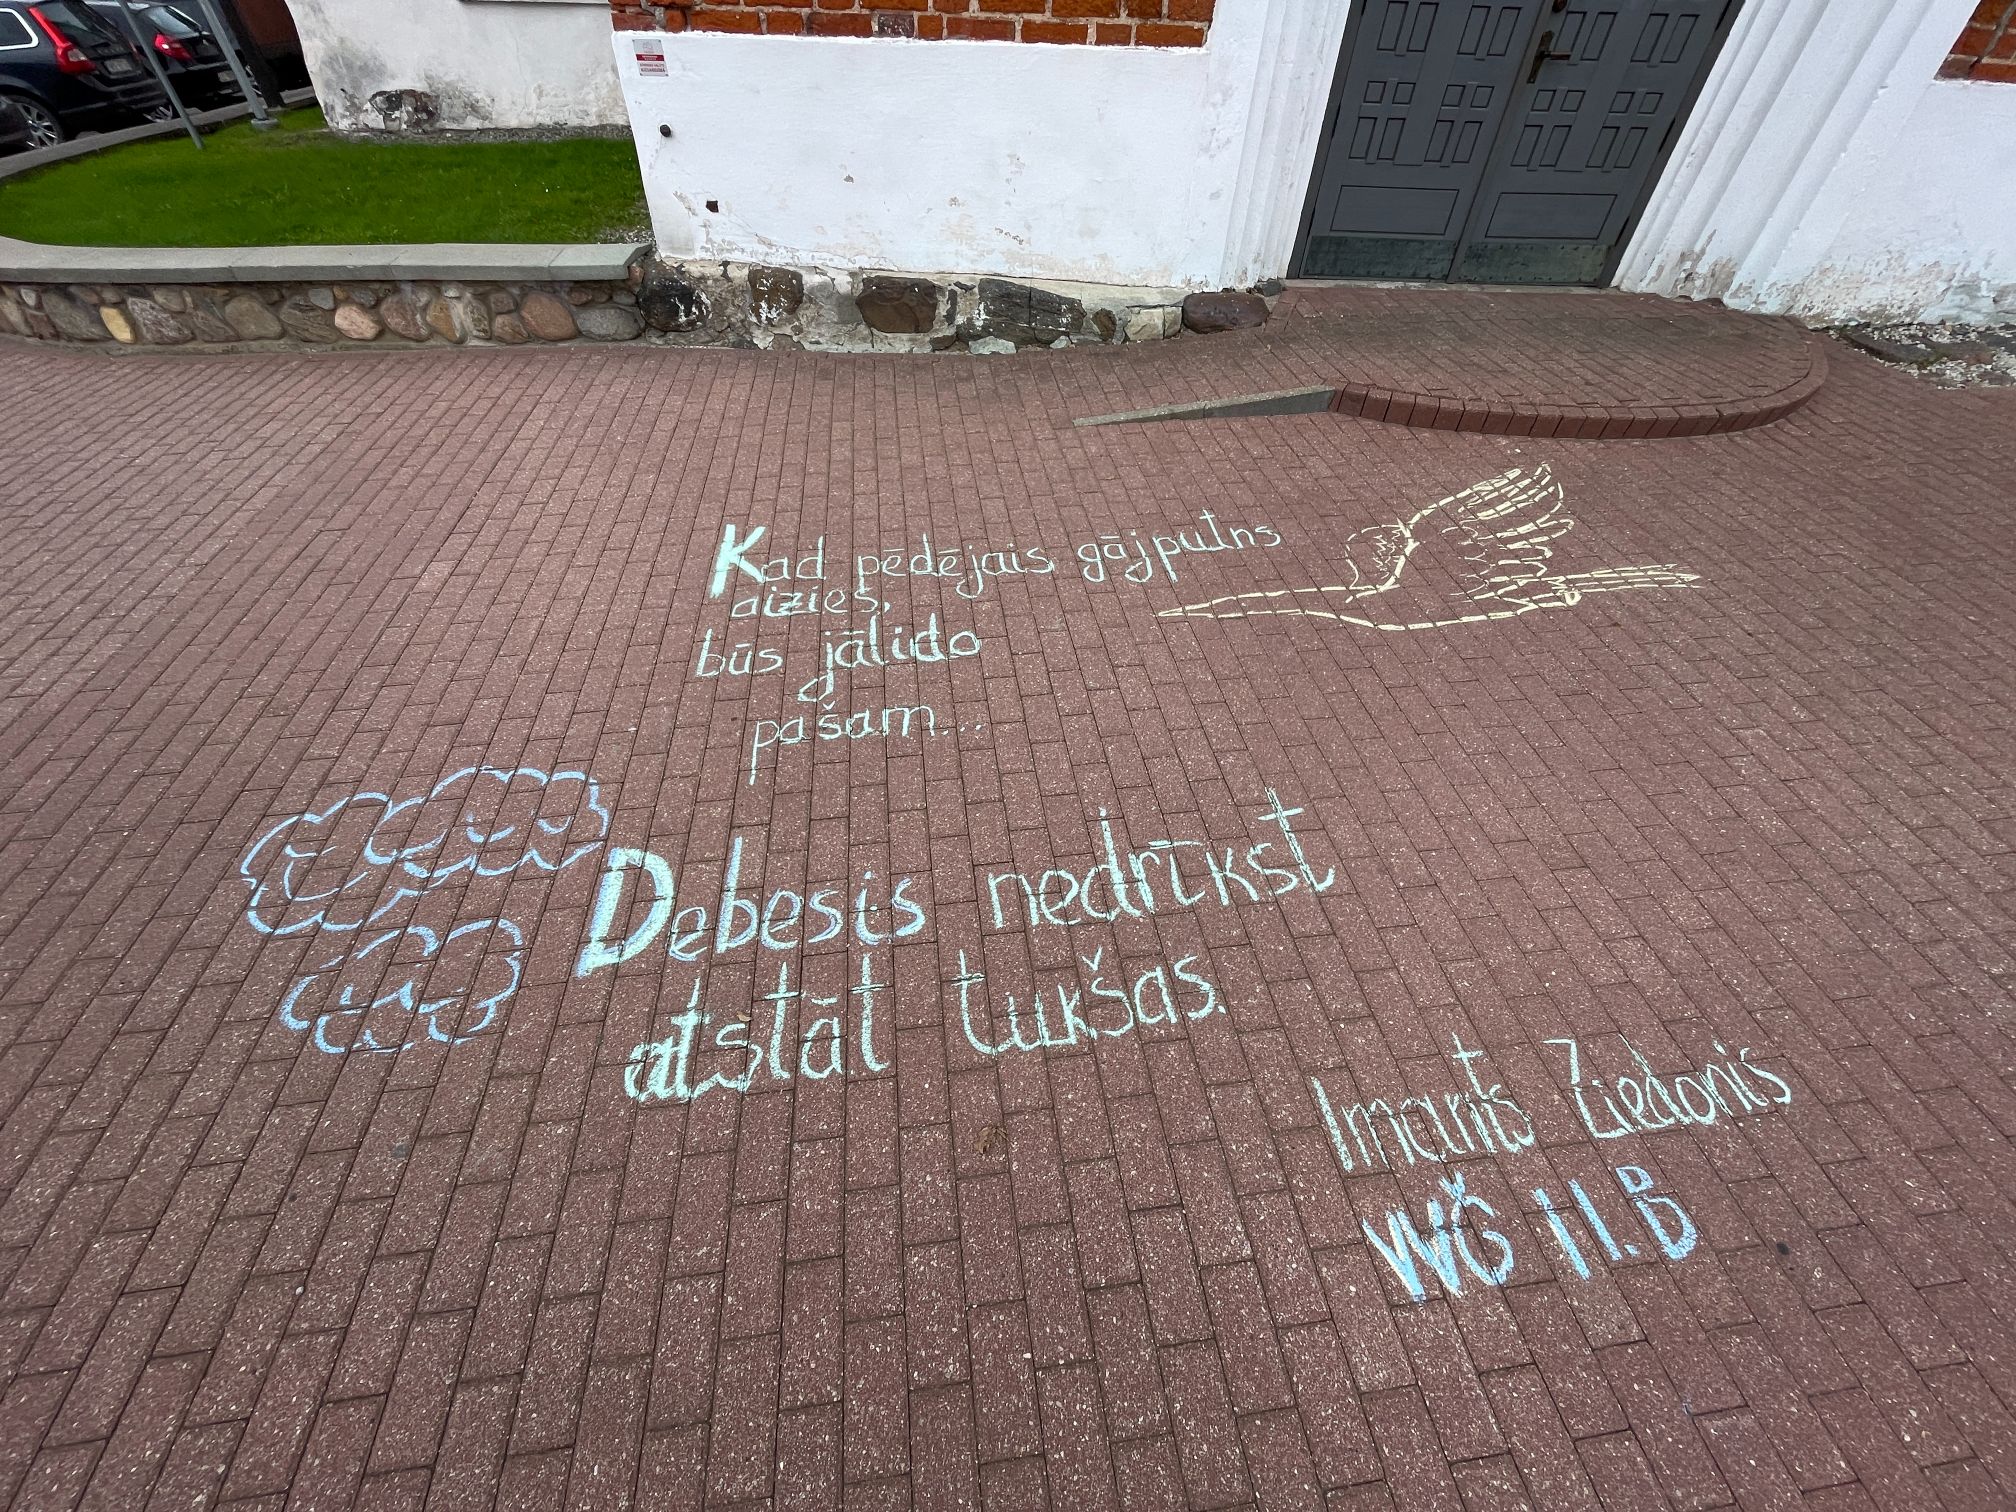 Kad pēdējais gājputns
aizies,
būs jālido
pašam...
Debesis nedrīkst
atstāt tukšas.
Imants Ziedonis
VVĢ 11.B